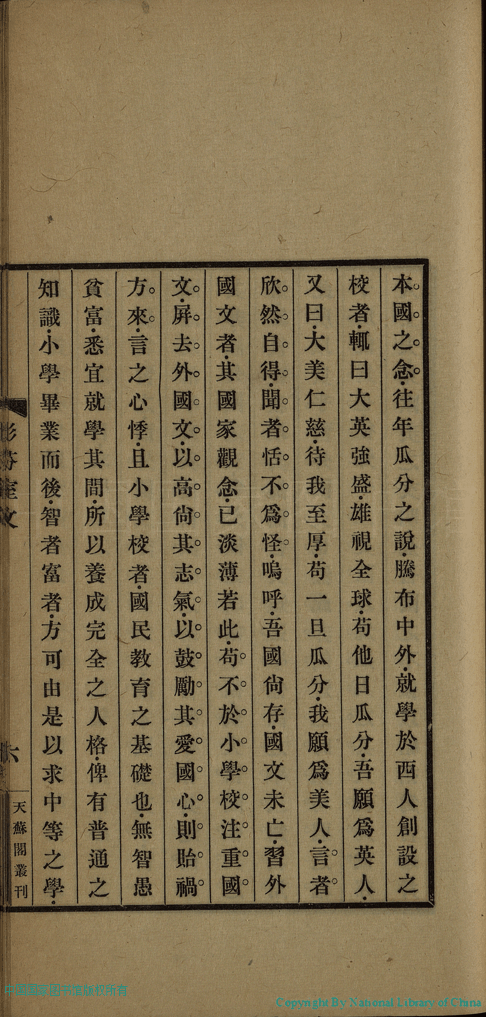 本國之念往年瓜分之說騰布中外就學於西人創設之
校者輒曰大英強盛雄視全球苟他日瓜分吾願爲英人
又曰大美仁慈待我至厚苟一旦瓜分我願爲美人言者
欣然自得聞者恬不爲怪嗚呼吾國尙存國文未亡習外
國文者其國家觀念已淡薄若此苟不於小學校注重國
文屏去外國文以高尙其志氣以鼓勵其愛國心則貽禍
方來言之心悸且小學校者國民教育之基礎也無智愚
貧富悉宜就學其間所以養成完全之人格俾有普通之
知識小學畢業而後智者富者方可由是以求中等之學
六
天蘇閣叢刊
Copyright By National Library of China